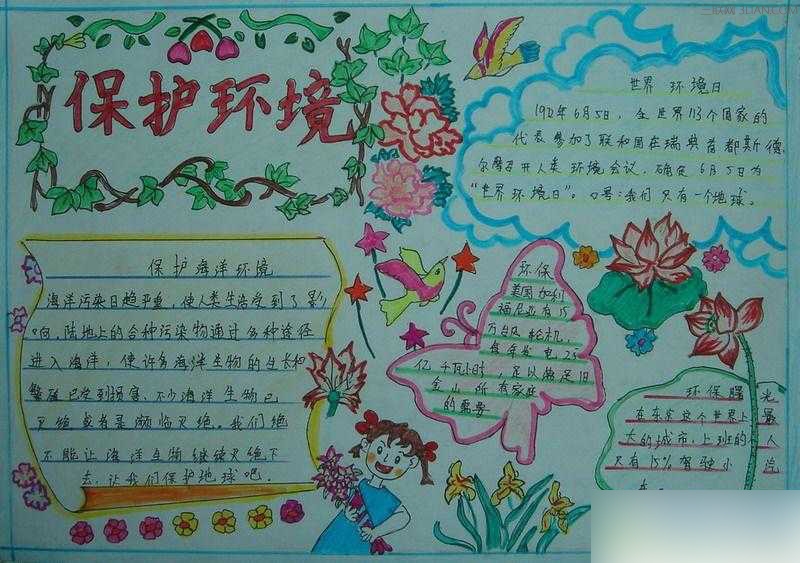 三联网 3LIAN.COM
保护环境
世界 环境日
1972年6月5日，全世界113个国家的
代表参加了联和国在瑞典首都斯德
尔摩召开人类环境会议。确定6月5日为
“世界环境日”。口号：我们只有一个地球。
保护海洋环境
海洋污染日趋严重，使人类生活受到了影
响，陆地上的各种污染物通过多种途径
进入海洋，使许多海洋生物的生长和
繁殖已受到损害，不少海洋生物已
灭绝或者是濒临灭绝。我们绝
不能让海洋生物继续灭绝下
去，让我们保护地球吧。
环保
美国加利
福尼亚有15
万台风轮机，
每年发电25
亿千瓦小时，足以满足旧
金山所有家庭
的需要
环保曙光
在东京这个世界上最
大的城市，上班的人
只有15%驾驶小汽
车。